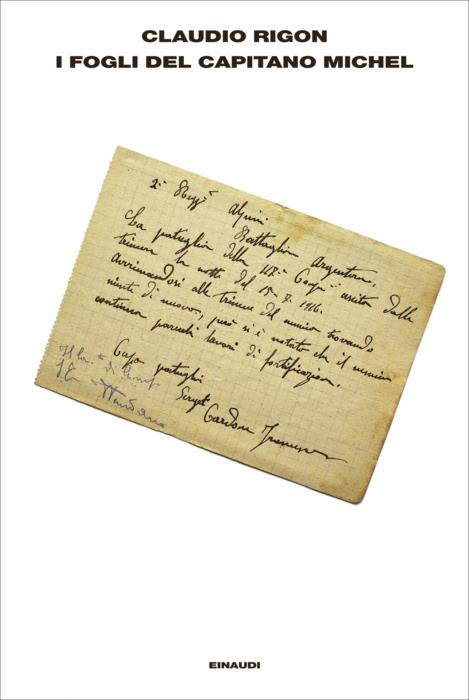 CLAUDIO RIGON
I FOGLI DEL CAPITANO MICHEL
2° Regg° Alpini Battaglion Argentera.
La patuglia della 117ª Comp. uscita dalle
trincee la notte del 15- 7. 1916.
Avvicinandosi alle trincee del nemico trovando
niente di nuovo, però si è notato che il nemico
continua parechi lavori di fortificazion.
Capo patuglia
Sergte
Cardon Francesco
Il di
EINAUDI